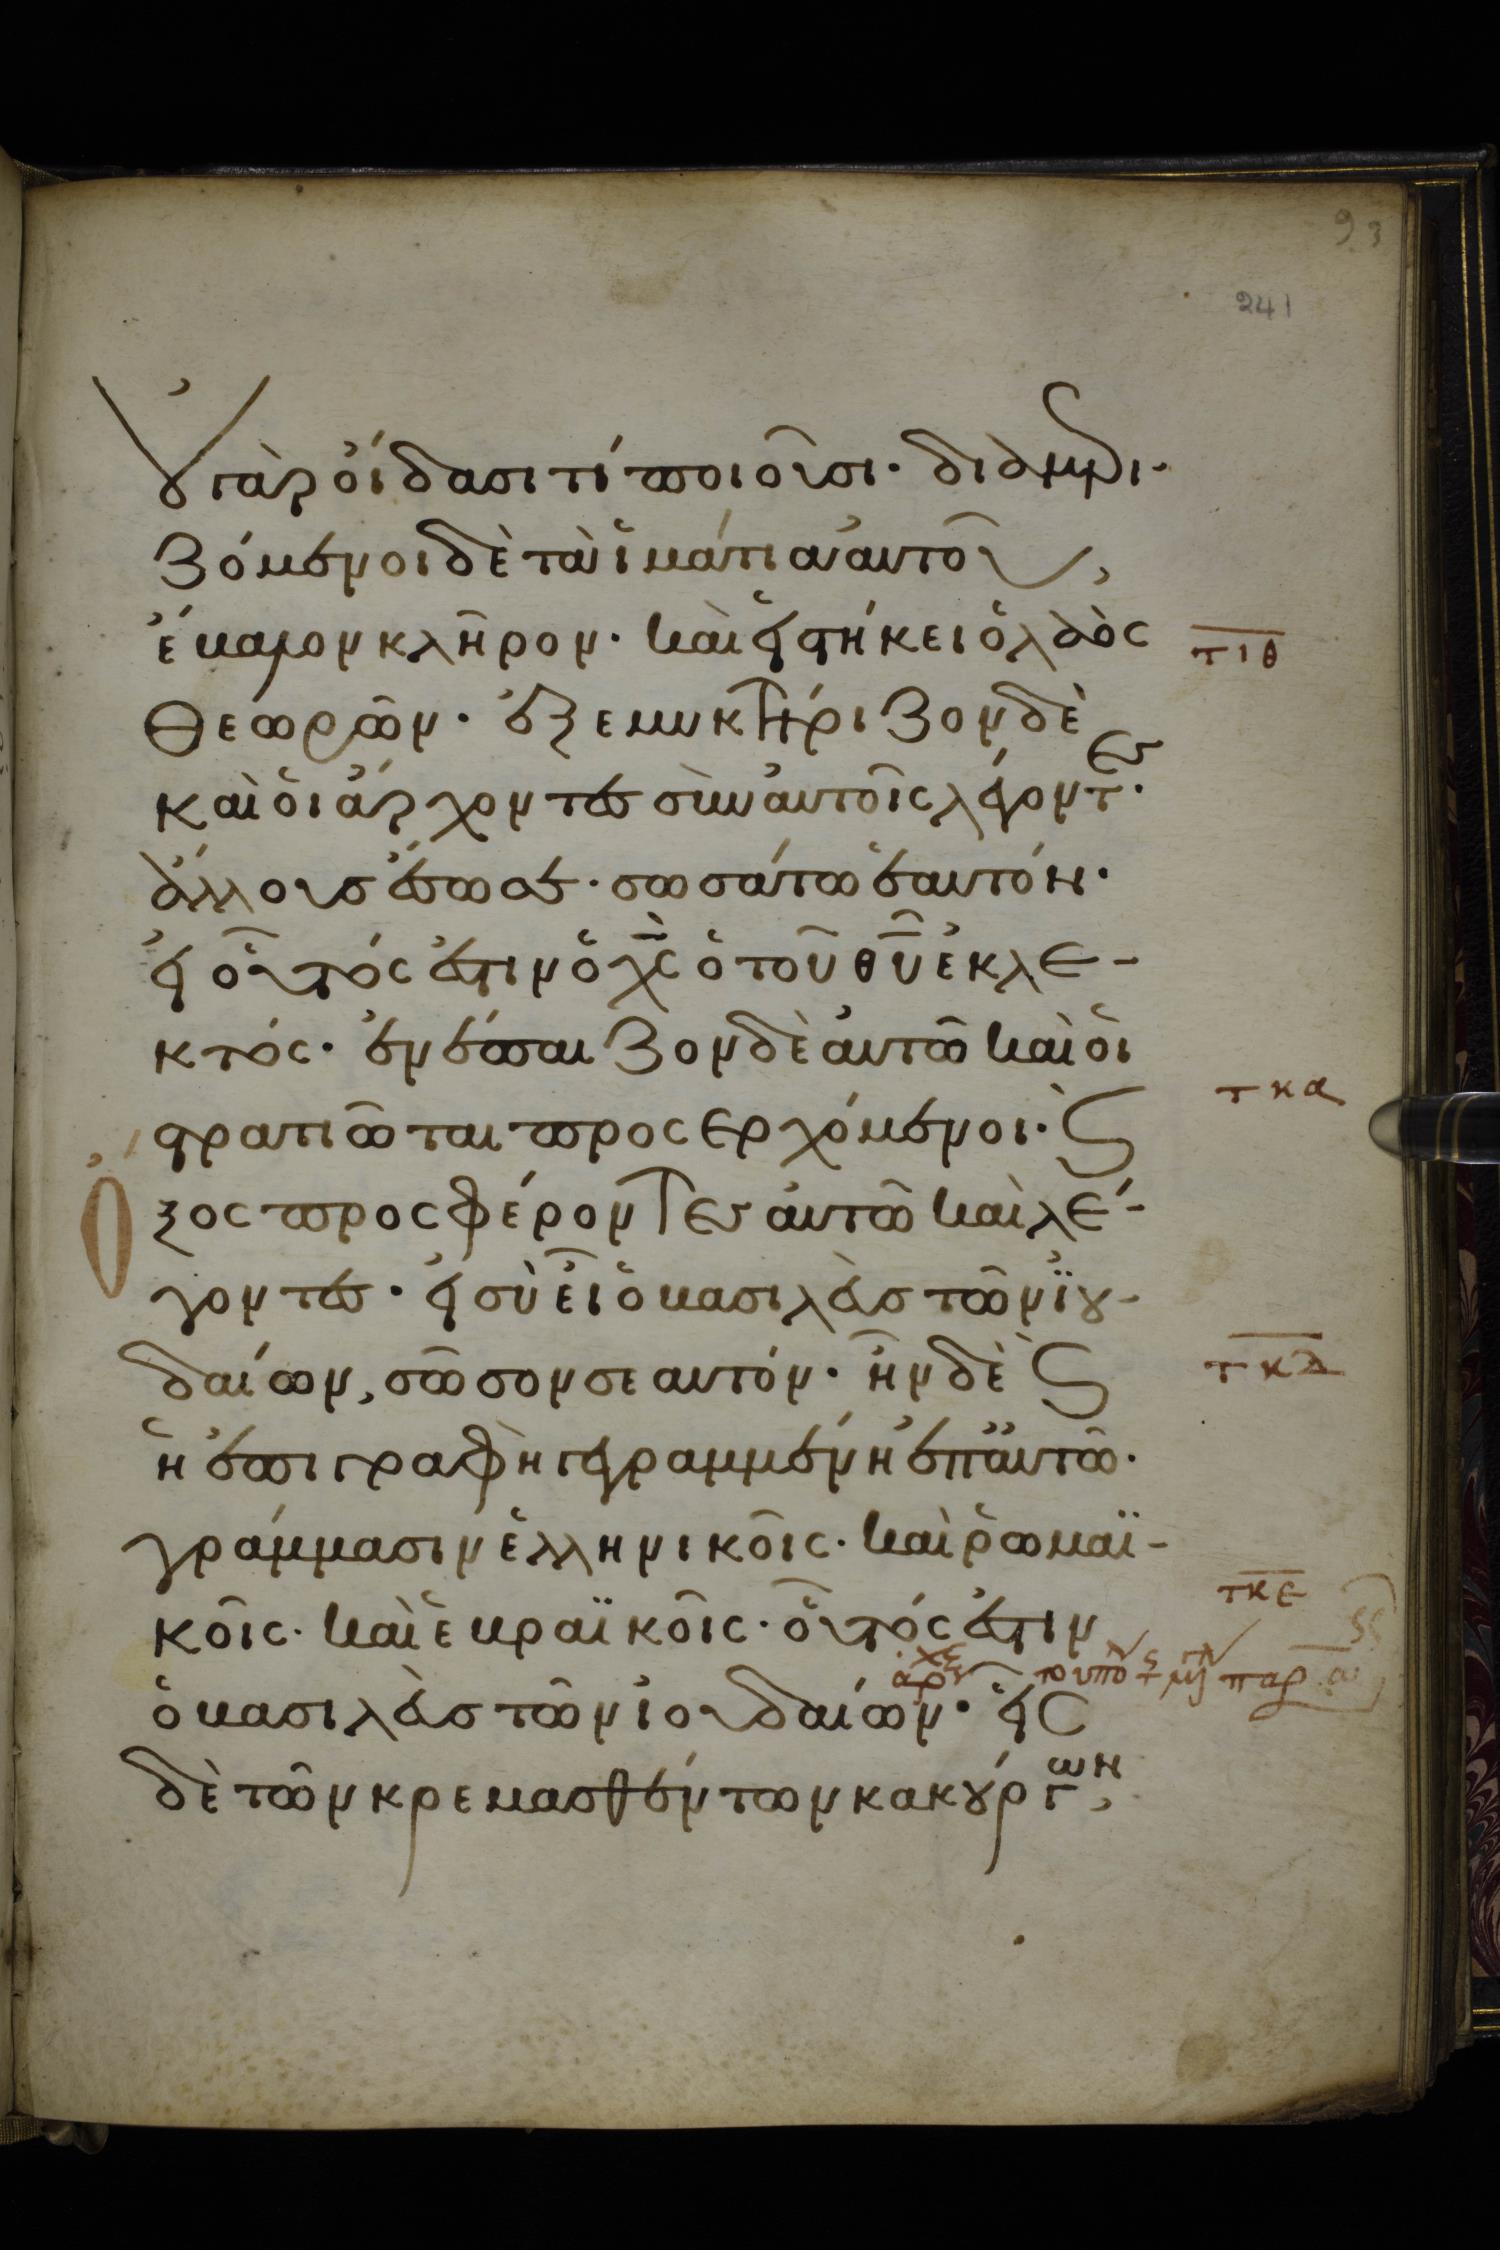 93
241
Ὀυ γὰρ οἴδασι τί ποιοῦσι· διαμερι-
ζόμενοι δὲ τὰ ἱμάτια αὐτοῦ,
ἔβαλον κλῆρον· καὶ εἱστήκει ὁ λαὸς
τιθ
θεωρῶν· ἐξεμυκτήριζον δὲ
καὶ οἱ ἄρχοντες σὺν αὐτοῖς λέγοντες·
ἄλλους ἔσωσε· σωσάτω ἑαυτόν·
εἰ οὗτός ἐστιν ὁ χ̅ς̅ ὁ τοῦ θ̅υ̅ ἐκλε-
κτός· ἐνέπαιζον δὲ αὐτῶ καὶ οἱ
τκα
στρατιῶται προσερχόμενοι· Ϛ
Ὄξος προσφέροντες αὐτῶ καὶ λέ-
γοντες· εἰ σὺ εἶ ὁ βασιλεὺς τῶν ἰου-
δαίων, σῶσον σεαυτόν· ἦν δὲ Ϛ
τκδ
ἡ ἐπιγραφὴ γεγραμμένη ἐπ' αὐτῶ·
γράμμασιν ἑλληνικοῖς· καὶ ῥωμαϊ-
κοῖς· καὶ ἑβραϊκοῖς· οὗτός ἐστιν
τκε
ὁ βασιλεὺς τῶν ἰουδαίων· εἷς
δὲ τῶν κρεμασθέντων κακούργων,